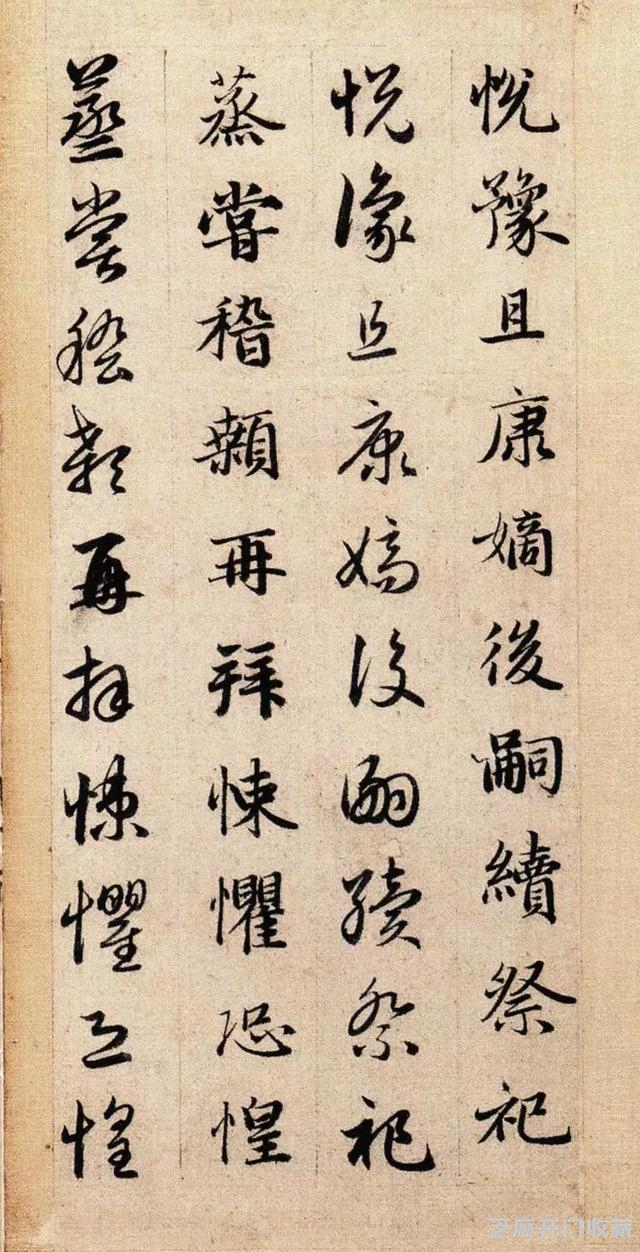 悦豫且康嫡後嗣續祭祀
悦豫且康嫡後嗣續祭祀
蒸嘗稽顙再拜悚懼恐惶
蒸嘗稽顙再拜悚懼恐惶
芝麻开门收藏